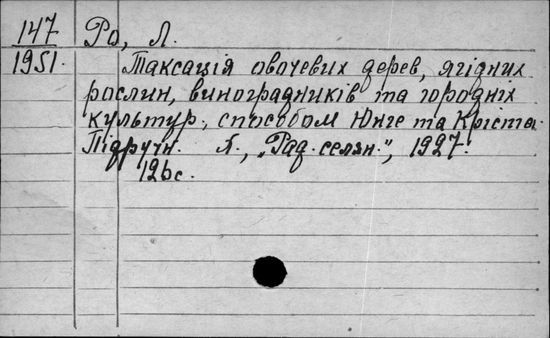 147
1951.
Ро, Л.
Таксація овочевих дерев, ягідних
рослин, виноградників та городніх
культур, способом Юнге та Кріста.
Підручн. К., „Рад. селян.", 1927.
126 с.